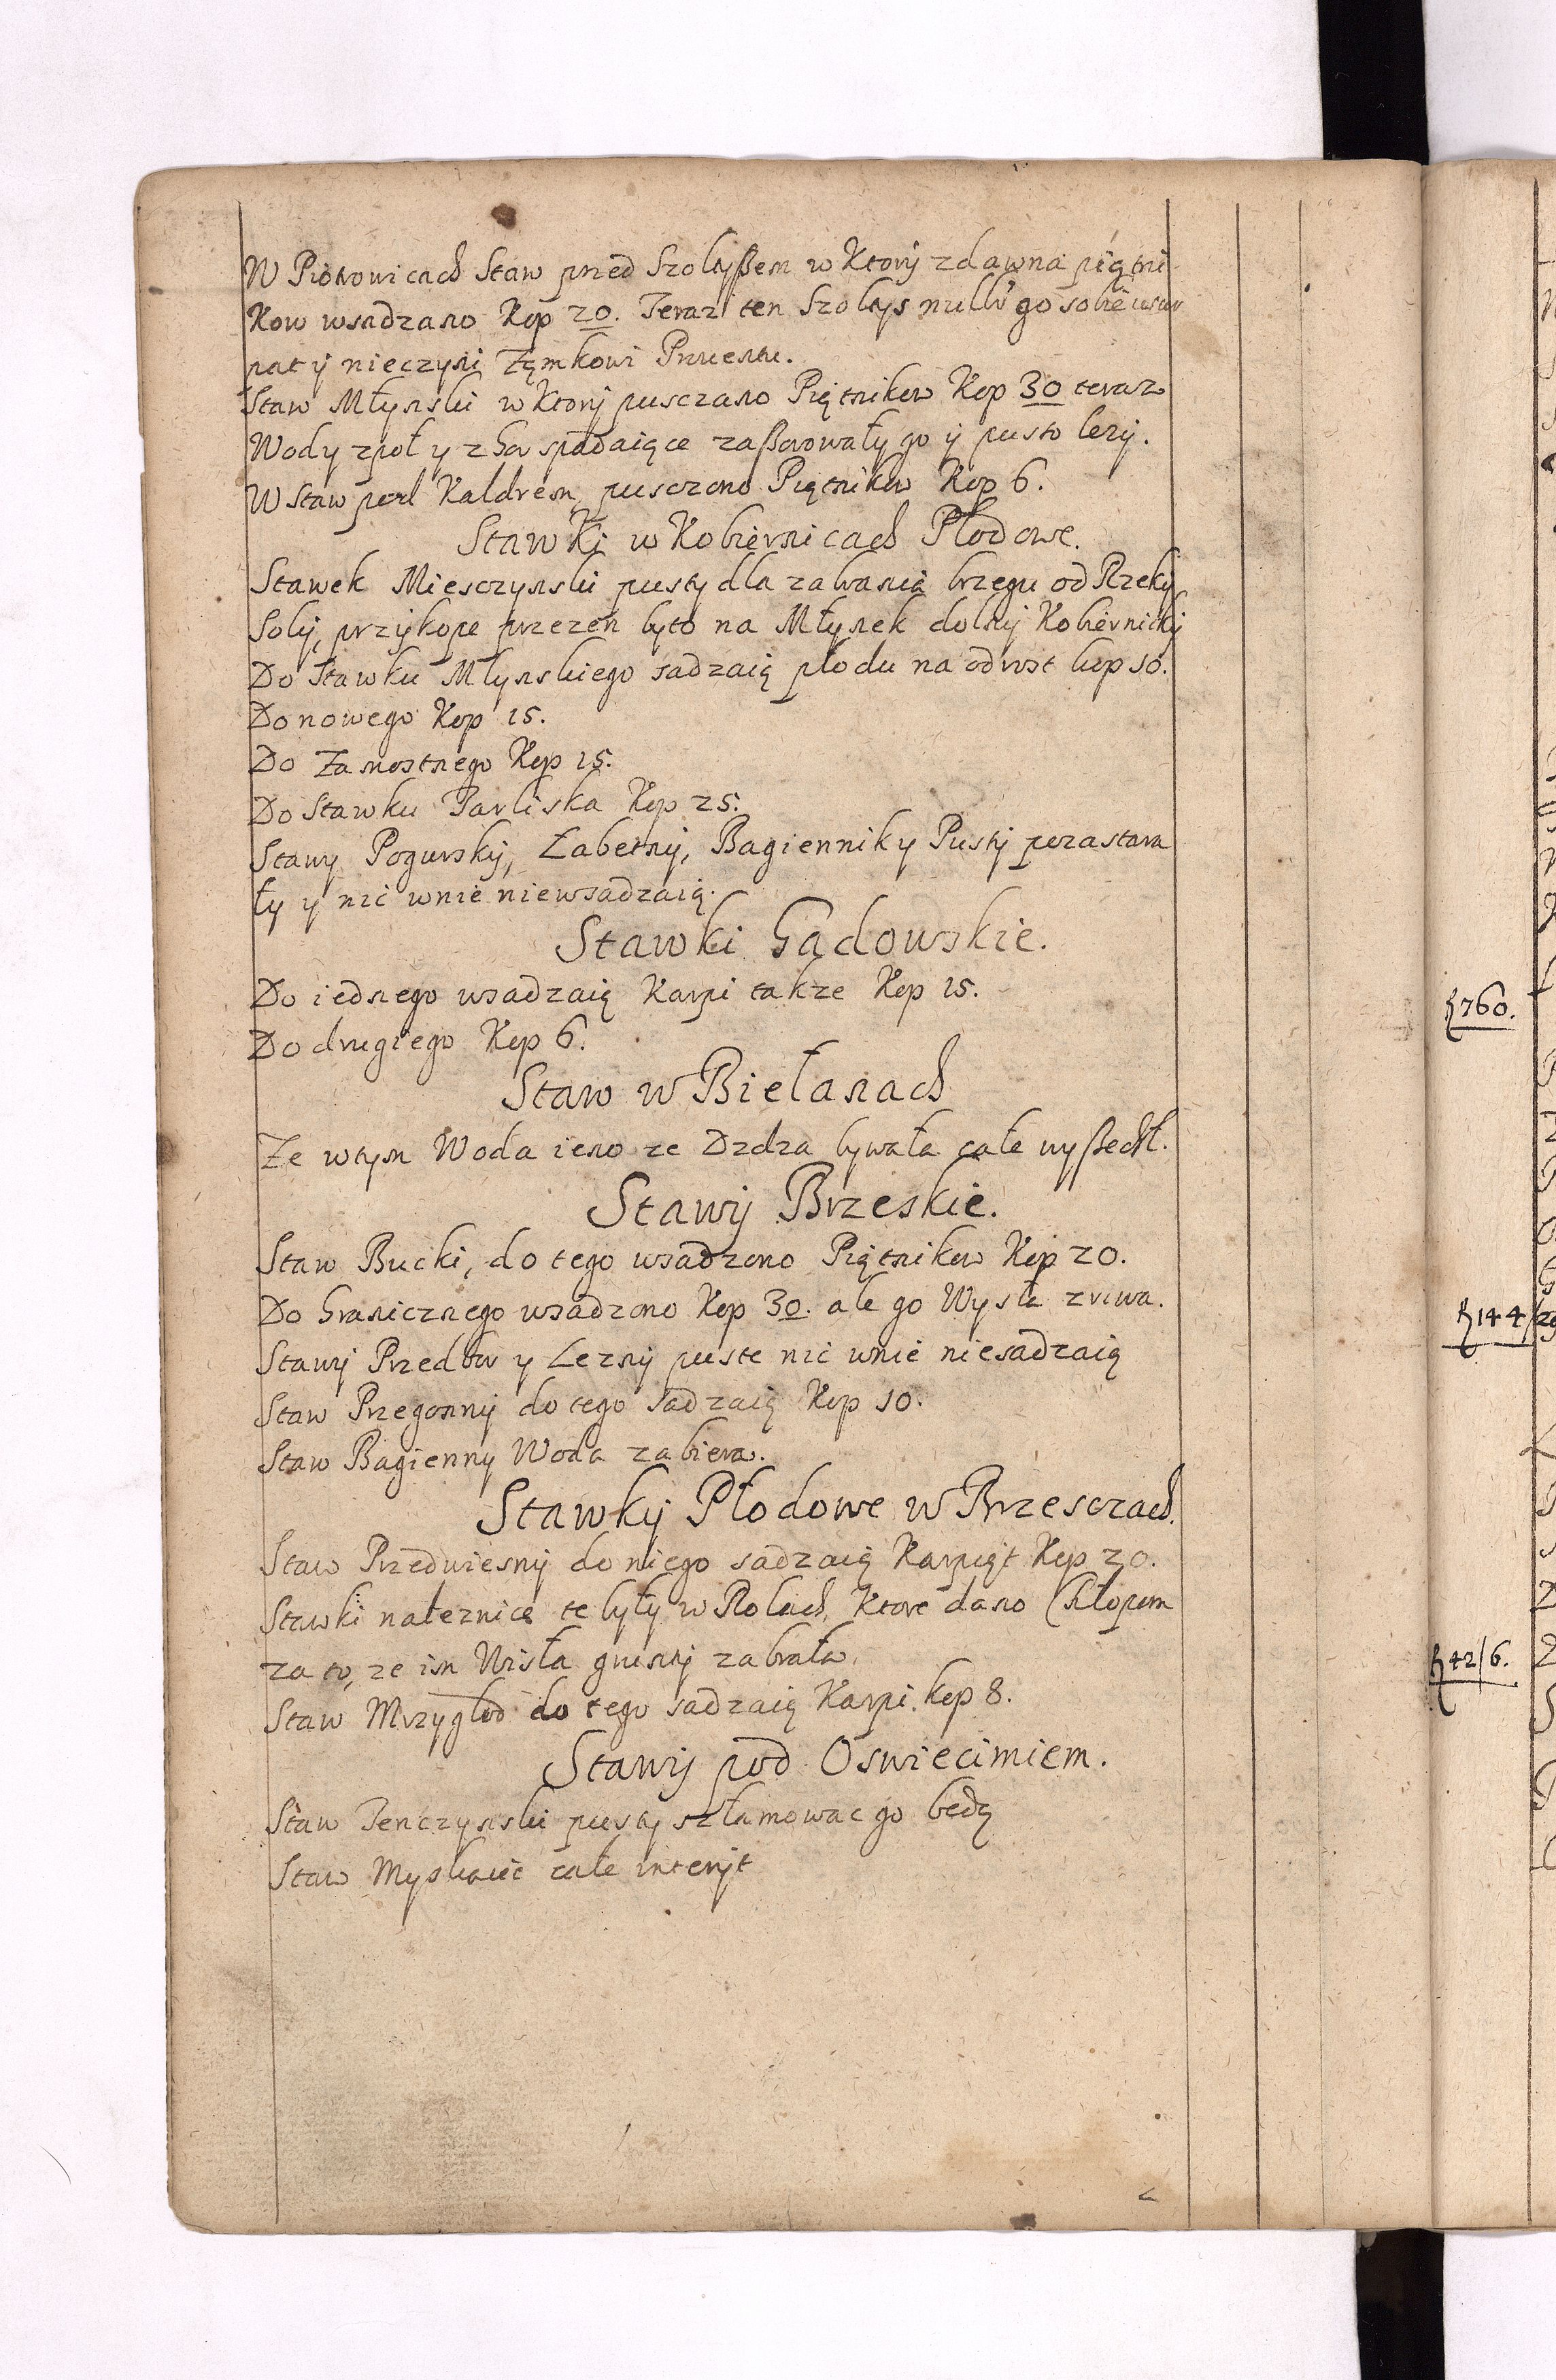 W Piotrowicach Staw przed Szoltyßem w Ktorÿ zdawna piątni
kow wsadzano Kop 20. Teraz ten Szoltys go sobie usur
pat ÿ nieczyni Zęmkowi
Staw Młynski w Ktorÿ pusczano Piątnikow Kop 30 teraz
Wody zpoł y z Gor spadaiące zaßorowały go ÿ pusto leży.
W Staw pod Kaldrem pusczono Piątnikow Kop 6.
Stawki w Kobiernicach Płodowe.
Stawek Miesczynski pusty dla zabrania brzegu od Rzeki
Soly, przÿkope przezen byto na Młynek dolnÿ Kobiernicki
Do Stawku Młynskiego sadzaią płodu na odrost kop 10.
Do nowego Kop 15.
Do Zamostnego Kop 15.
Do Stawku Parliska Kop 25.
Stawy Pogurskÿ, Łabetnÿ, Bagienniky Pustÿ pozastara
ły y nic wnie niewsadzaią.
Stawki Gadowskie.
Do iednego wsadzaią Karpi takze Kop 15.
Do drugiego Kop 6.
Staw w Bielanach
Ze wtym Woda ieno ze Dzdza bywała cale wyßedł.
Stawÿ Brzeskie.
Staw Bucki, do tego wsadzono Piątnikow Kop 20.
Do Granicznego wsadzono Kop 30. ale go Wysła zriwa.
Stawÿ Przedbor y Leznÿ puste nic wnie niesadzaią
Staw Przegonnÿ do tego sadzaią Kop 10.
Staw Bagienny Woda zabiera.
Stawkÿ Płodowe w Brzesczach.
Staw Przedwiesnÿ do niego sadzaią Karpiąt Kop 20.
Stawki nałeznice te byłÿ w Rolach, Ktore dano Chłopom
za to, ze im Wisła gruntÿ zabrała.
Staw Mrzygłod do tego sadzaią Karpi. kop 8.
Stawÿ pod Oswiecimiem.
Staw Tenczynski pustÿ szlamowac go bedą
Staw cale interÿt
760.
144/29
42/6.